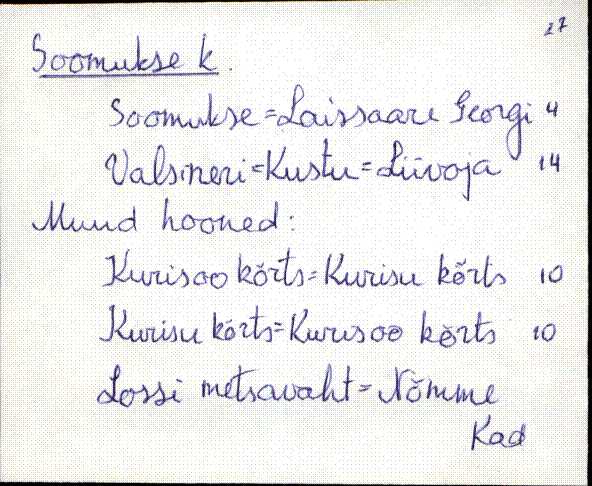 27
Soomukse k.
Soomukse=Laissaare Georgi 4
Valsineri=Kustu=Liivoja 14
Muud hooned:
Kurisoo kõrts=Kurisu kõrts 10
Kurisu kõrts=Kurisoo kõrts 10
Lossi metsavaht=Nõmme
Kad